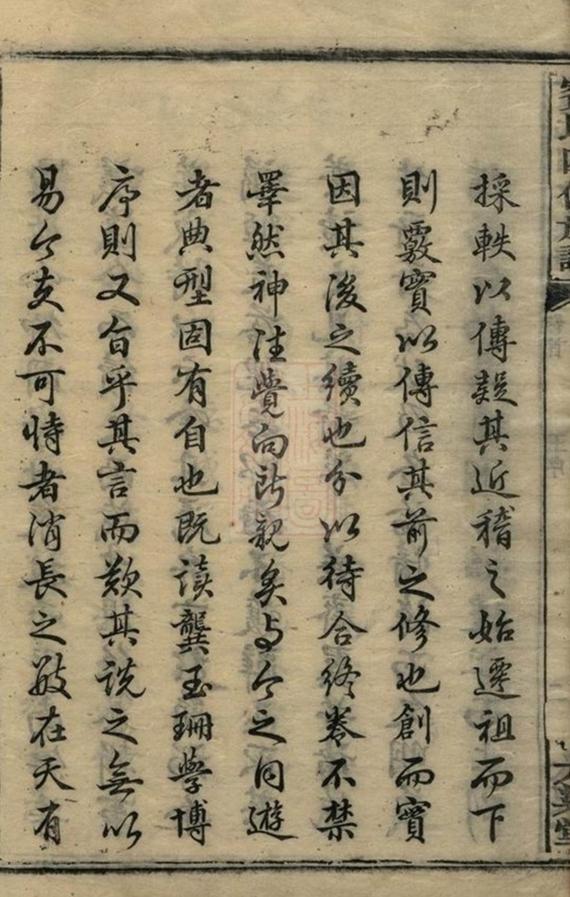 採軼以傳疑其近稽之始遷祖而下
則覈實以傳信其前之修也創而實
因其後之續也分以待合終卷不禁
睪然神往覺向所親炙与今之同遊
者典型固有自也既讀龔玉珊學博
序則又旨乎其言而歎其說之無以
易今夫不可恃者消長之數在天有